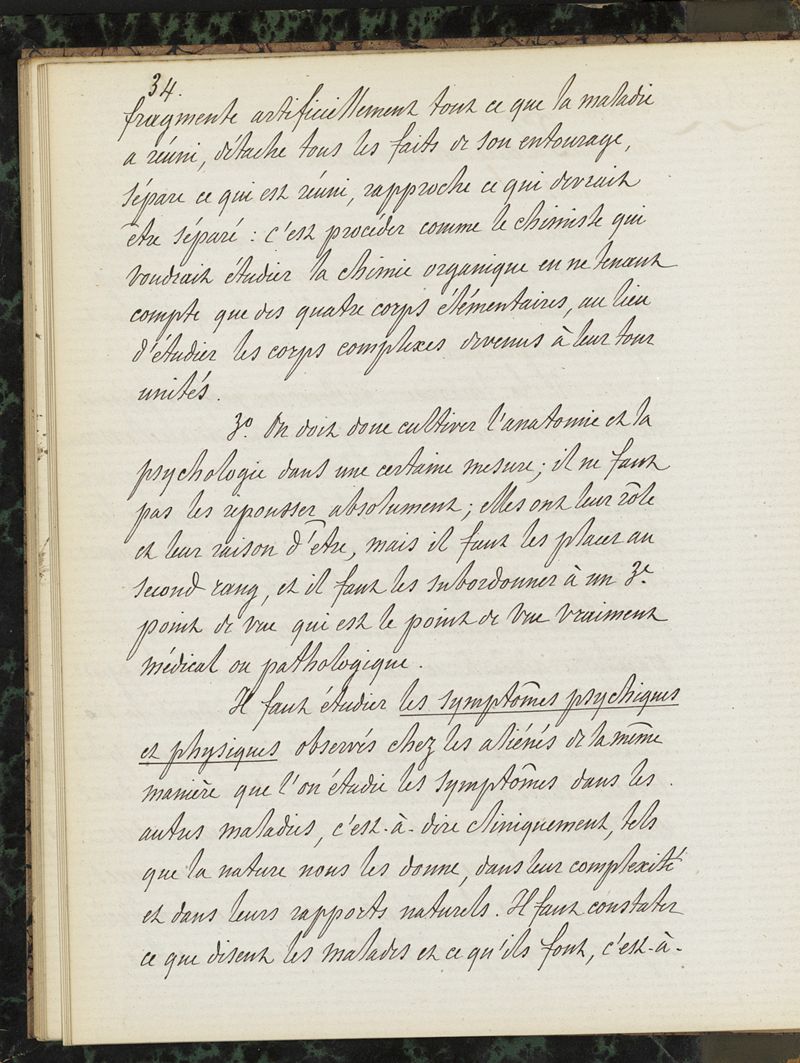 34.
fragmente artificiellement tout ce que la maladie
a réuni, détache tous les faits de son entourage,
sépare ce qui est réuni, rapproche ce qui devrait
être séparé : c'est procéder comme le chimiste qui
voudrait étudier la chimie organique en ne tenant
compte que des quatre corps élémentaires, au lieu
d'étudier les corps complexes devenus à leur tour
unités.
3º. On doit donc cultiver l'anatomie et la
psychologie dans une certaine mesure ; il ne faut
pas les repousser absolument ; elles ont leur rôle
et leur raison d'être, mais il faut les placer au
second rang, et il faut les subordonner à un 3e.
point de vue qui est le point de vue vraiment
médical ou pathologique.
Il faut étudier les symptômes psychiques
et physiques observés chez les aliénés de la même
manière que l'on étudie les symptômes dans les
autres maladies, c'est-à-dire cliniquement, tels
que la nature nous les donne, dans leur complexité
et dans leurs rapports naturels. Il faut constater
ce que disent les malades et ce qu'ils font, c'est-à-